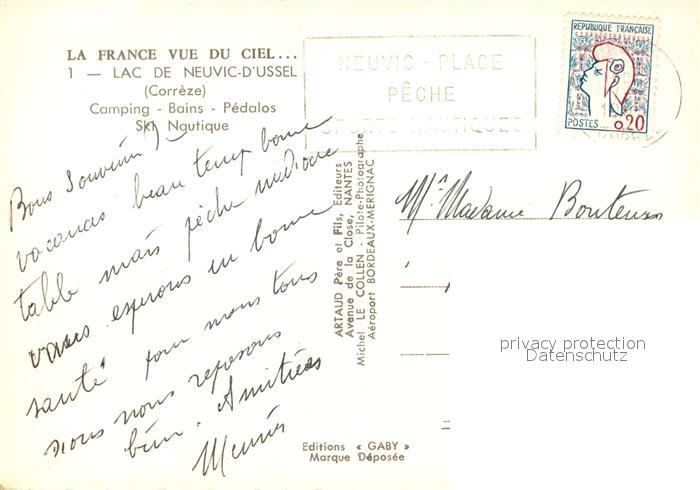 LA FRANCE VUE DU CIEL...
1 — LAC DE NEUVIC-D'USSEL
(Corrèze)
Camping - Bains - Pédalos
Ski Nautique
NEUVIC - PLAGE
PÊCHE
SPORTS NAUTIQUES
REPUBLIQUE FRANÇAISE
POSTES 0,20
Bons Souvenirs de
vacances beau temps bonne
table mais pêche médiocre
vous espérons en bonne
santé pour nous tous
nous nous reposons
bien. Amitiés
ARTAUD Père et Fils, Editeurs
Avenue de la Close, NANTES
Michel LE COLLEN - Pilote-Photographe
Aéroport BORDEAUX-MERIGNAC
Mr Madame
privacy protection
Datenschutz
Editions « GABY »
Marque Déposée